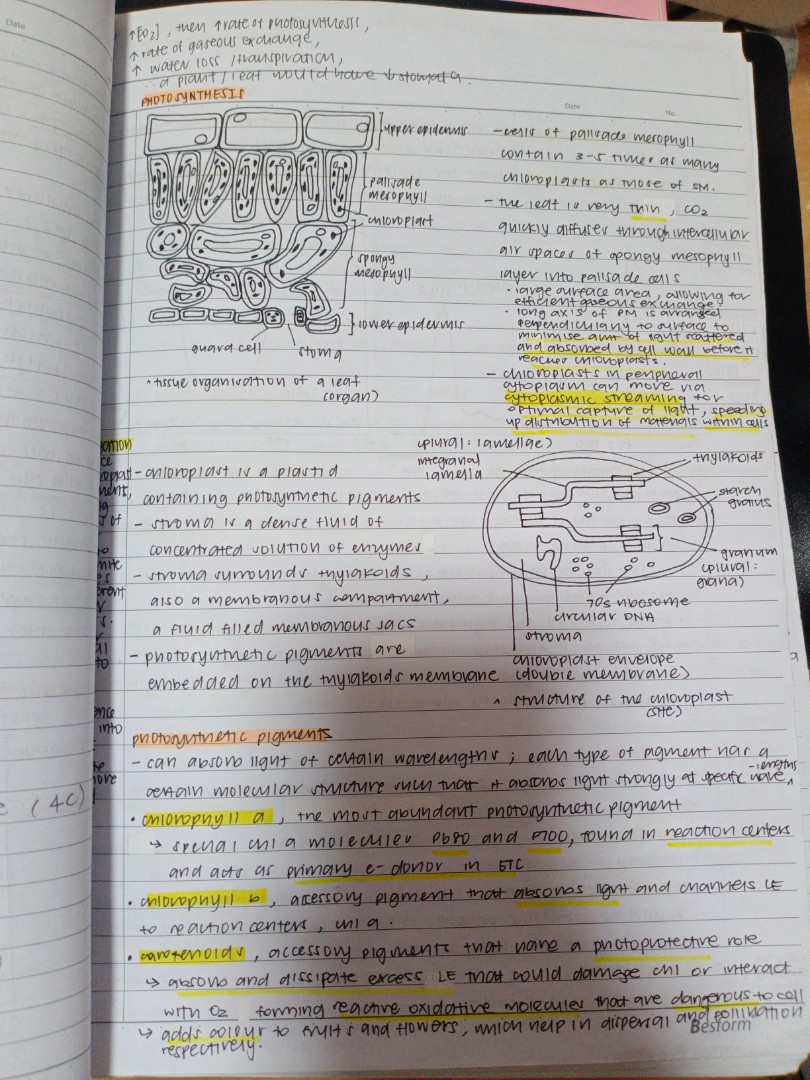 ↑[CO₂], then ↑rate of photosynthesis,
↑rate of gaseous exchange,
↑ water loss /transpiration,
∴ a plant/leaf would have ↓stomata.
PHOTOSYNTHESIS
Date
No.
upper epidermis
palisade mesophyll
chloroplast
spongy mesophyll
lower epidermis
guard cell
stoma
^ tissue organisation of a leaf
(organ)
- cells of palisade mesophyll
contain 3-5 times as many
chloroplasts as those of SM.
- the leaf is very thin, CO2
quickly diffuses through intercellular
air spaces of spongy mesophyll
layer into palisade cells
· large surface area, allowing for
efficient gaseous exchange
· long axis of PM is arranged
perpendicularly to surface to
minimise amt of light scattered
and absorbed by cell wall before it
reaches chloroplasts.
- chloroplasts in peripheral
cytoplasm can move via
cytoplasmic streaming for
optimal capture of light, speeding
up distribution of materials within cells
- chloroplast is a plastid
containing photosynthetic pigments
- stroma is a dense fluid of
concentrated solution of enzymes
- stroma surrounds thylakoids,
also a membranous compartment,
a fluid filled membranous sacs
- photosynthetic pigments are
embedded on the thylakoids membrane
(plural: lamellae)
integranal
lamella
thylakoids
starch
grains
granum
(plural:
grana)
70s ribosome
circular DNA
stroma
chloroplast envelope
(double membrane)
^ structure of the chloroplast
(site)
photosynthetic pigments
- can absorb light of certain wavelengths ; each type of pigment has a
certain molecular structure such that it absorbs light strongly at specific wave-lengths
· chlorophyll a, the most abundant photosynthetic pigment
→ special chl a molecules P680 and P700, found in reaction centers
and acts as primary e- donor in ETC
· chlorophyll b, accessory pigment that absorbs light and channels LE
to reaction centers, chl a.
· carotenoids, accessory pigments that have a photoprotective role
→ absorb and dissipate excess LE that could damage chl or interact
with O2 forming reactive oxidative molecules that are dangerous to cell
→ adds colour to fruits and flowers, which help in dispersal and pollination
respectively.
Besform
Date
(4C)